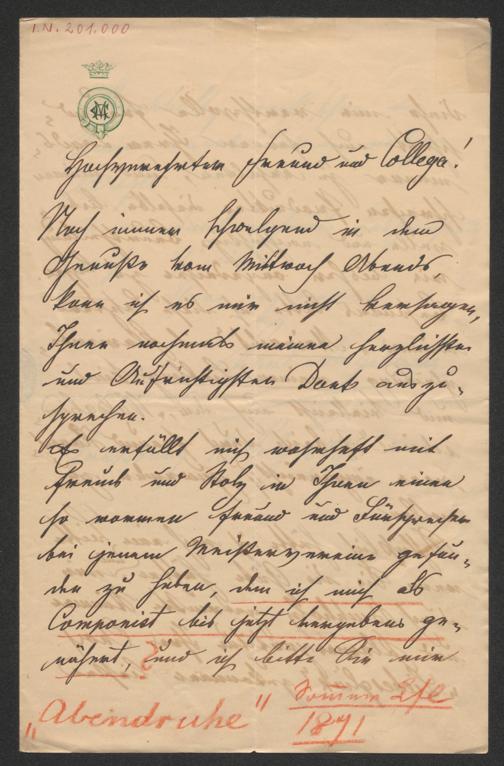 I.N. 201.000
Hochverehrter Freund und Collega!
Noch immer schwelgend in dem
Genuße vom Mittwoch Abends,
kann ich es mir nicht versagen,
Ihnen nochmals meinen herzlichsten
und Aufrichtigsten Dank auszu-
sprechen.
Es erfüllt mich wahrhaft mit
Freude und Stolz in Ihnen einen
so warmen Freund und Fürsprecher
bei jenem Meistervereine gefun-
den zu haben, dem ich mich als
Componist bis jetzt vergebens ge-
nähert, ? und ich bitte Sie mir
"Abendruhe"
1871